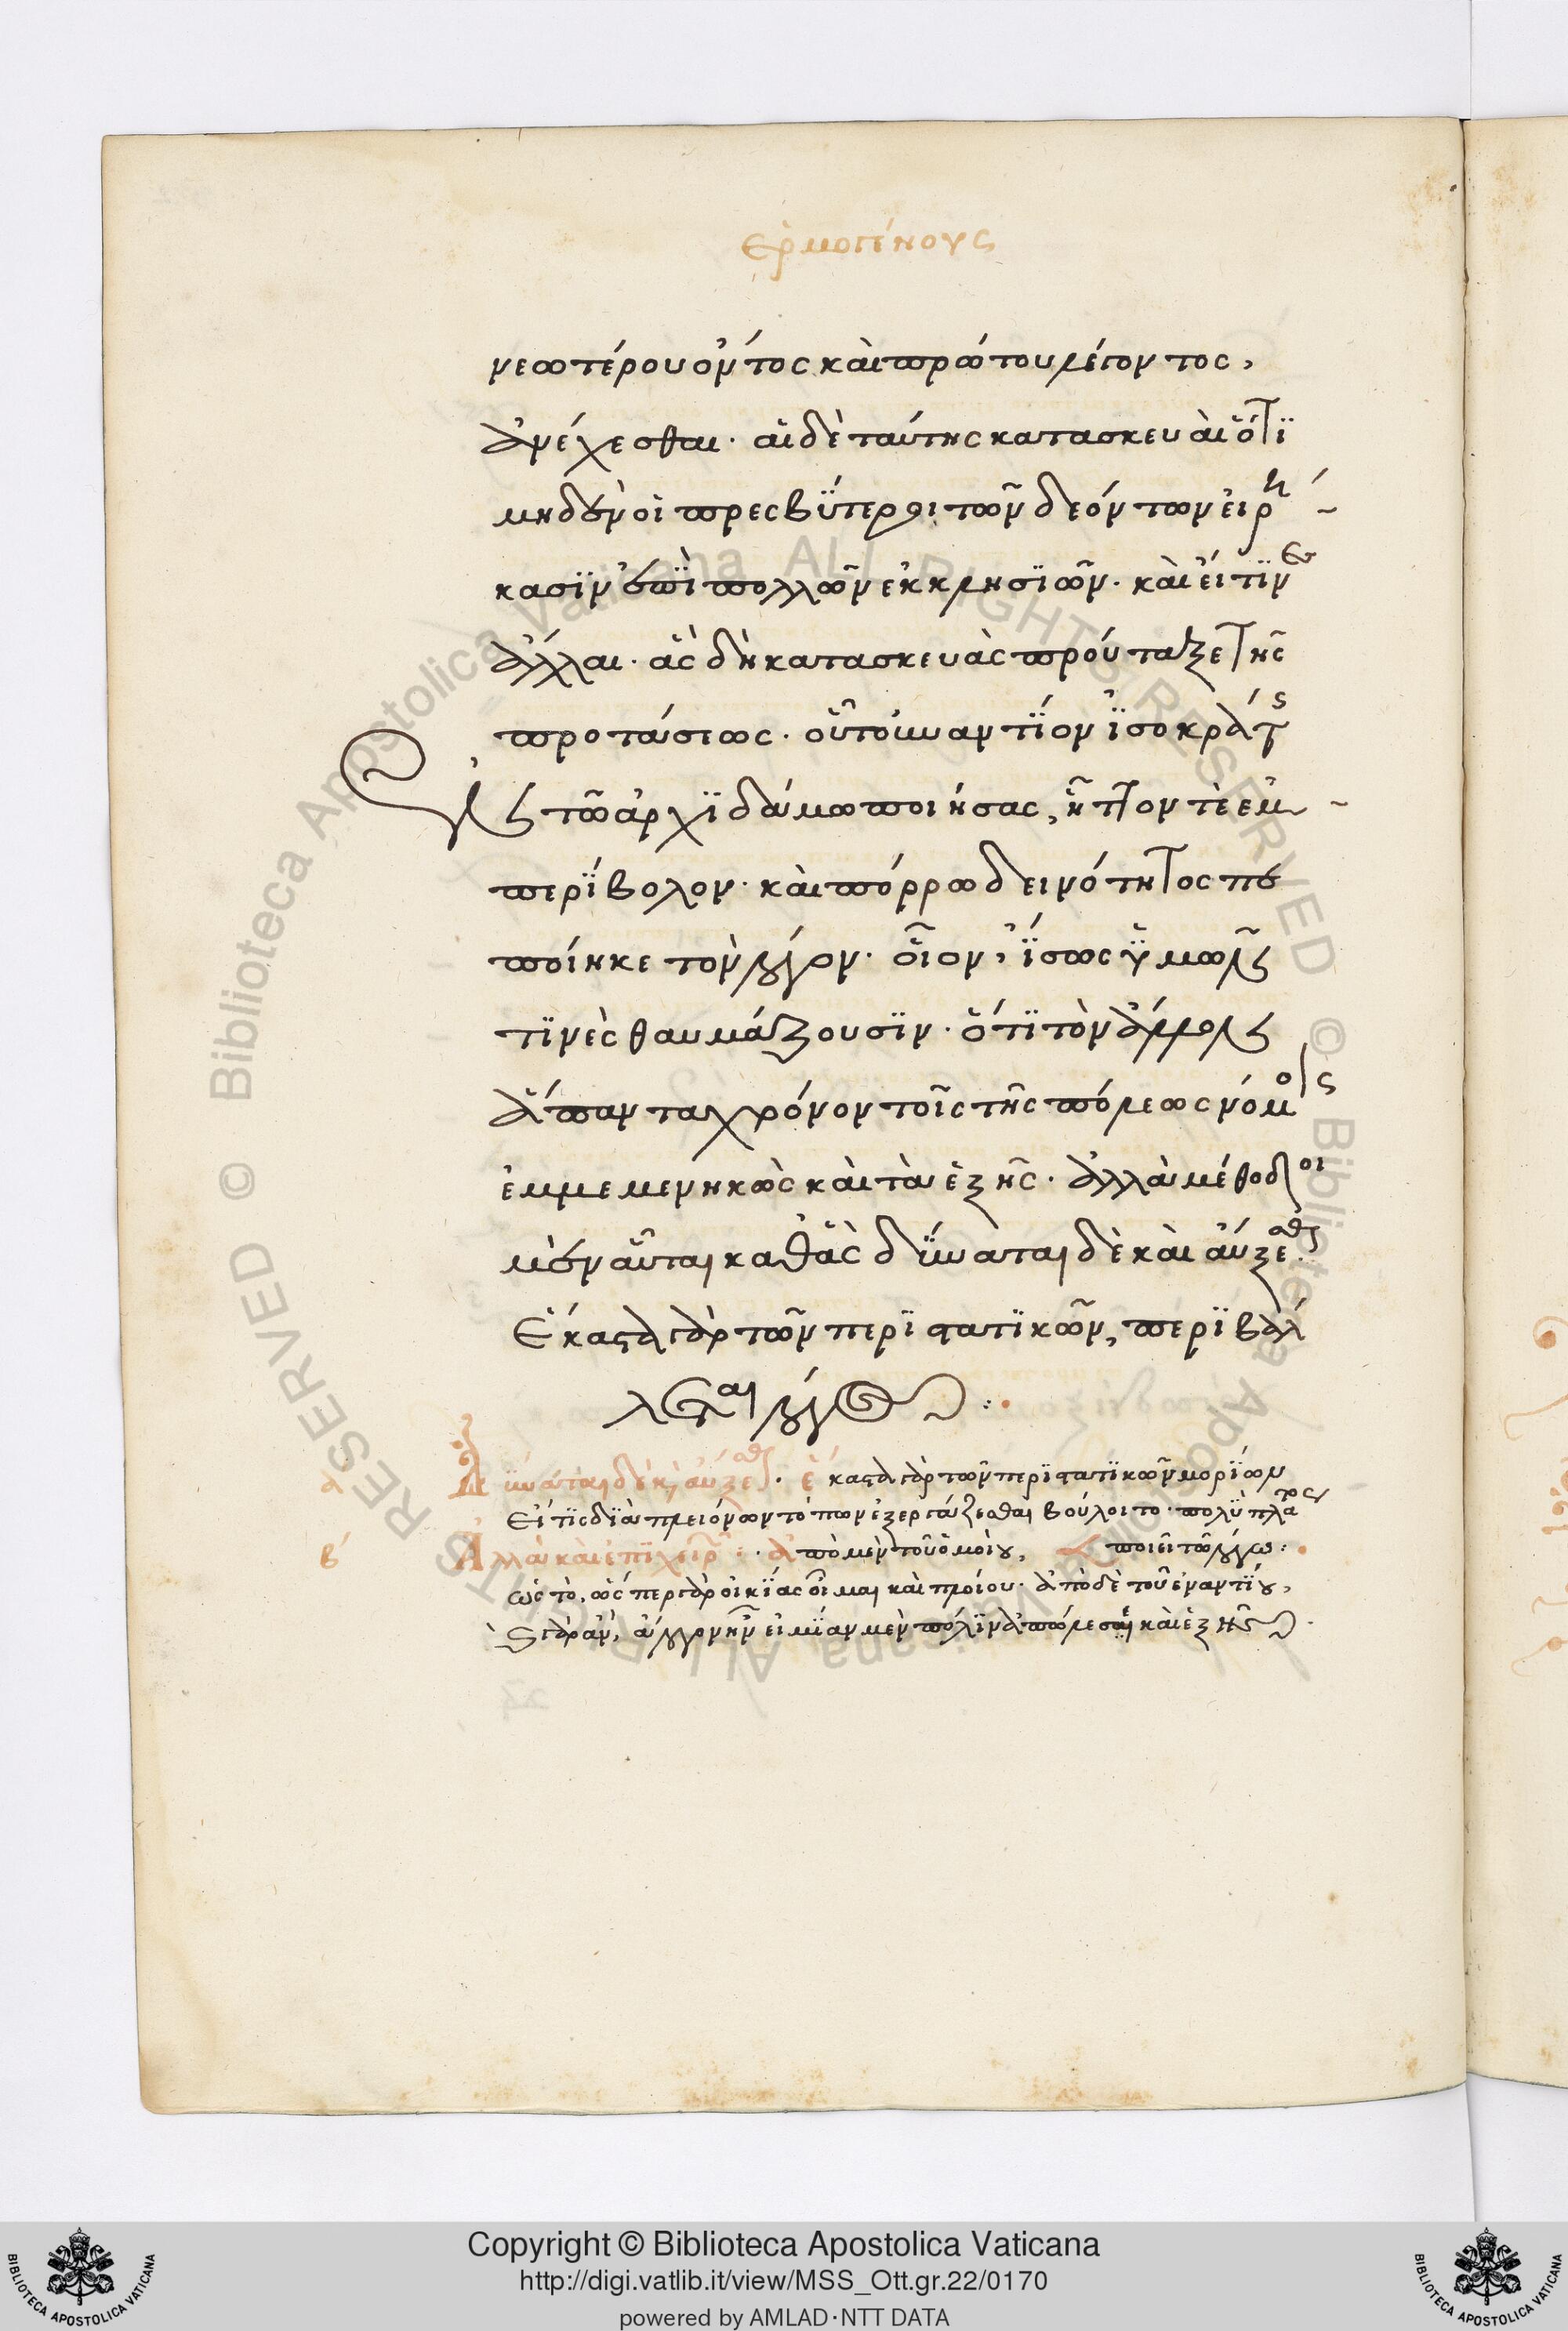 Ἑρμογένους
νεωτέρου ὄντος καὶ πρώτου λέγοντος,
ἀνέχεσθαι· αἱ δὲ ταύτης κατασκευαὶ ὅτι
μηδὲν οἱ πρεσβύτεροι τῶν δεόντων εἰρή
κασιν ἐπὶ πολλῶν ἐκκλησιῶν· καὶ εἴ τινες
ἄλλαι· ἃς δὴ κατασκευὰς προύταξε τῆς
προτάσεως· οὗ τοὐναντίον Ἰσοκράτης
ἐν τῷ Ἀρχιδάμῳ ποιήσας, ἧττόν τε ἐμ
περίβολον· καὶ πόρρω δεινότητος πε
ποίηκε τὸν λόγον· οἷον, ἴσως ὑμῶν
τινὲς θαυμάζουσιν· ὅτι τὸν ἄλλον
ἅπαντα χρόνον τοῖς τῆς πόλεως νόμοις
ἐμμεμενηκὼς καὶ τὰ ἑξῆς· ἀλλὰ μέθοδοι
μὲν αὗται καθ' ἃς δύναται δὲ καὶ αὔξεσθαι
Ἕκαστα γὰρ τῶν περιστατικῶν, περιβάλ
λεται λόγος :·
α Δύναται δὲ καὶ αὔξεσθαι· ἕκαστα γὰρ τῶν περιστατικῶν μορίων
Εἴ τις διὰ πλειόνων τόπων ἐξεργάζεσθαι βούλοιτο· πολὺ πλάτος
β Ἀλλὰ καὶ ἐπιχειρ : · ἀπὸ μὲν τοῦ ὁμοίου, ποιεῖ τῷ λόγῳ :·
ὡς τὸ, ὥσπερ γὰρ οἰκίας οἶμαι καὶ πλοίου· ἀπὸ δὲ τοῦ ἐναντίου,
γὰρ ἂν, ἄλογον ἦν εἰ μίαν μὲν πόλιν ἀπολέσαι καὶ ἑξῆς
Copyright © Biblioteca Apostolica Vaticana
http://digi.vatlib.it/view/MSS_Ott.gr.22/0170
powered by AMLAD·NTT DATA